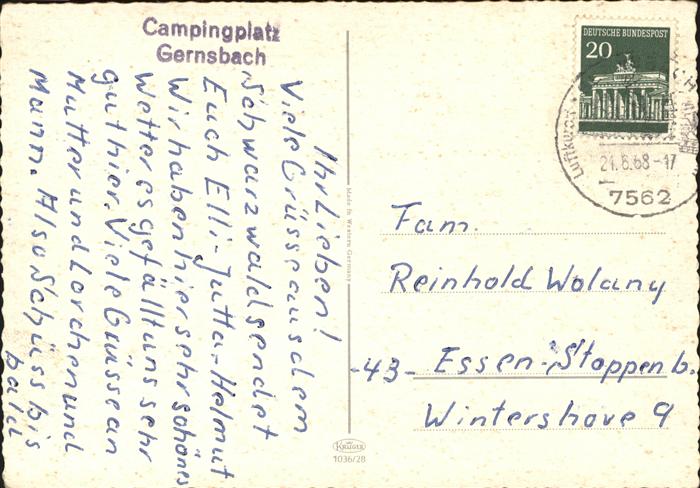 Campingplatz
Gernsbach
Ihr Lieben!
Viele Grüsse aus dem
Schwarzwald sendet
Euch Elli-Jutta-Helmut
Wir haben hier sehr schönes
Wetter es gefällt uns sehr
gut hier. Viele Grüsse an
Mutter und Lorchen und
Mann. Also Schüss bis
bald
Made in Western Germany
KRÜGER
1036/28
DEUTSCHE BUNDESPOST
20
Luftkurort
21.6.68-17
7562
Fam.
Reinhold Wolany
-43- Essen-Stoppenb.
Wintershove 9